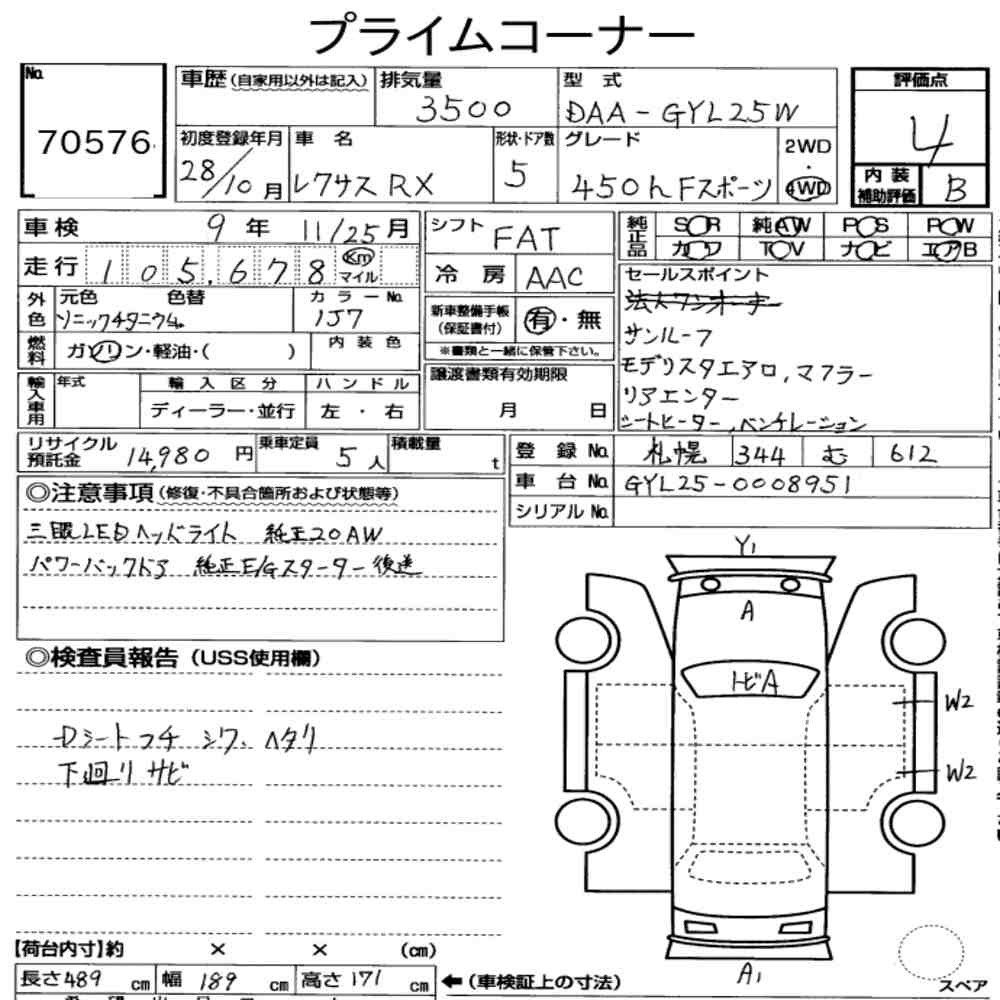 プライムコーナー
No.
70576
車歴(自家用以外は記入)
排気量
3500
型式
DAA-GYL25W
評価点
4
内装
補助評価
B
初度登録年月
28/10月
車名
レクサス RX
形状・ドア数
5
グレード
450h Fスポーツ
2WD
・
4WD
車検
9年 11/25月
走行 105,678 Km
マイル
シフト
FAT
冷房 AAC
純正品
SOR 純AW POS POW
カワ TOV ナビ エアB
外色
元色 色替
ソニックチタニウム
カラーNo.
1J7
新車整備手帳
(保証書付)
有・無
※書類と一緒に保管下さい。
燃料
ガソリン・軽油・( )
内装色
セールスポイント
法人ワンオーナー
サンルーフ
モデリスタエアロ,マフラー
リアエンター
シートヒーター,ベンチレーション
輸入車用
年式
輸入区分
ディーラー・並行
ハンドル
左・右
譲渡書類有効期限
月 日
リサイクル
預託金
14,980円
乗車定員
5人
積載量
t
登録No. 札幌 344 む 612
車台No. GYL25-0008951
シリアルNo.
◎注意事項(修復・不具合箇所および状態等)
三眼LEDヘッドライト 純正20AW
パワーバックドア 純正E/Gスターター後送
◎検査員報告(USS使用欄)
Dシートコチ シワ、ヘタリ
下廻リサビ
Y1
A
トビA
W2
W2
A1
スペア
【荷台内寸】約 × × (cm)
長さ489cm 幅189cm 高さ171cm
←(車検証上の寸法)